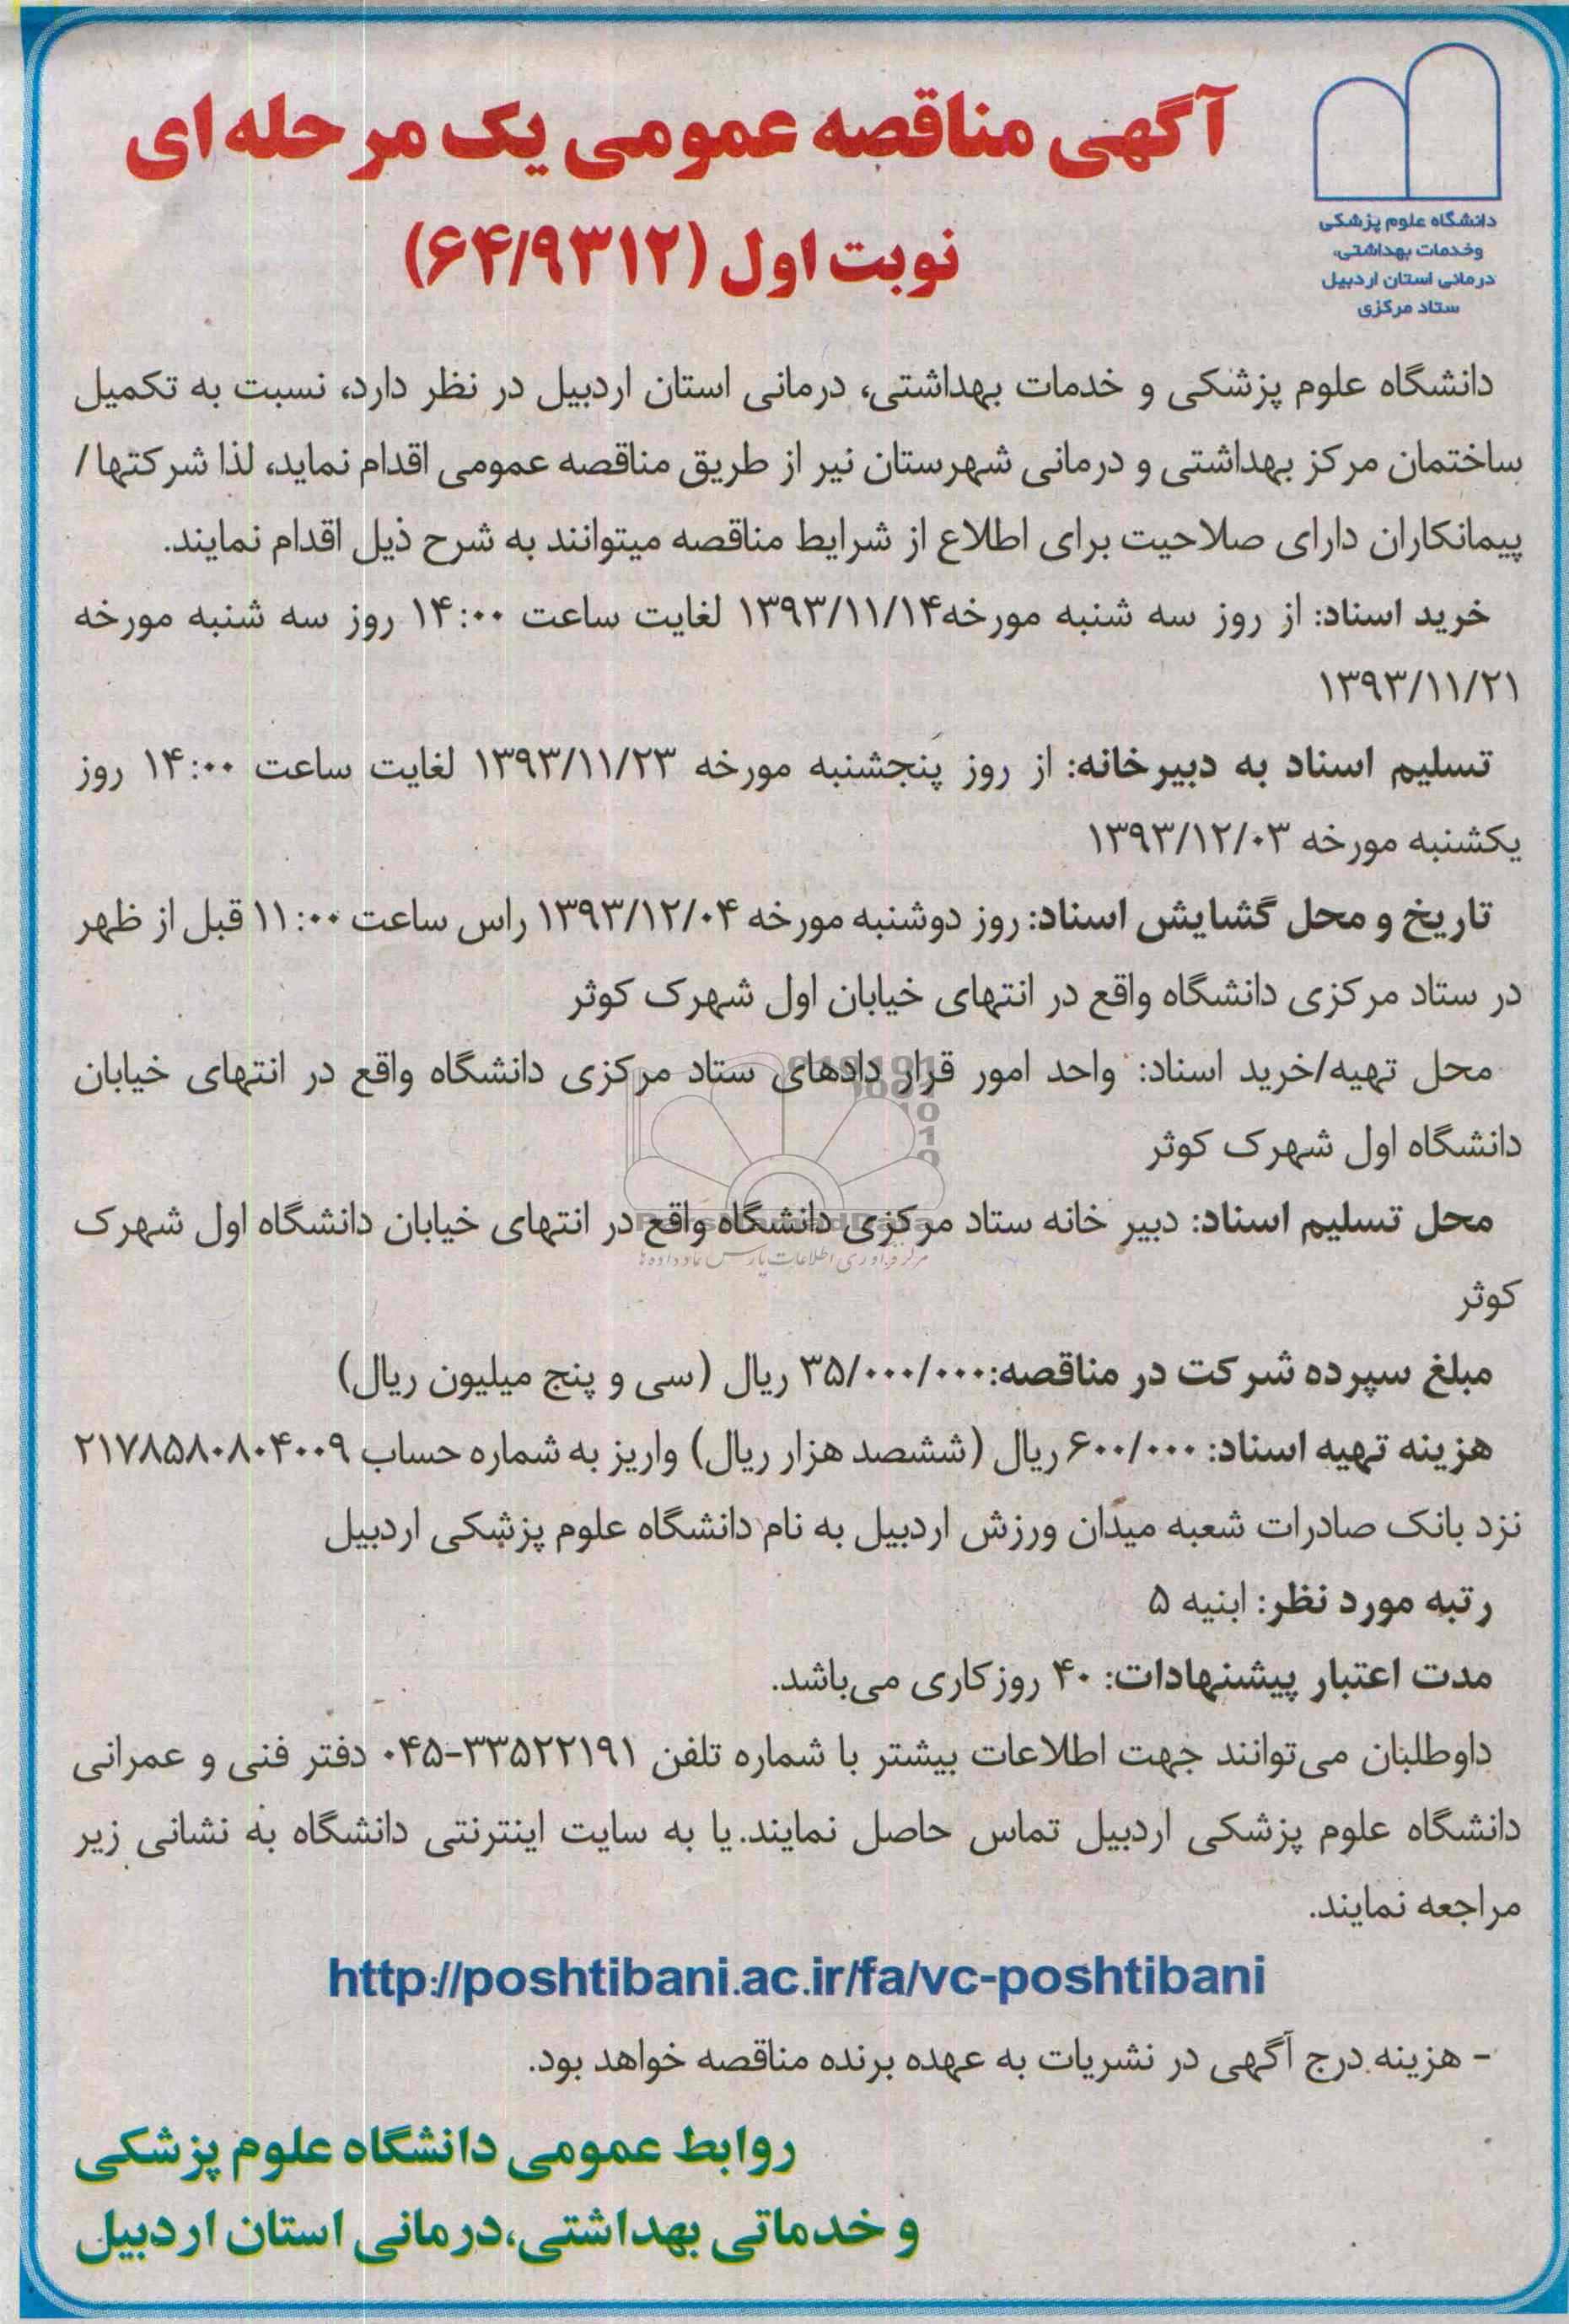 دانشگاه علوم پزشکی
وخدمات بهداشتی،
درمانی استان اردبیل
ستاد مرکزی
آگهی مناقصه عمومی یک مرحله ای
نوبت اول (۶۴/۹۳۱۲)
دانشگاه علوم پزشکی و خدمات بهداشتی، درمانی استان اردبیل در نظر دارد، نسبت به تکمیل
ساختمان مرکز بهداشتی و درمانی شهرستان نیر از طریق مناقصه عمومی اقدام نماید، لذا شرکتها/
پیمانکاران دارای صلاحیت برای اطلاع از شرایط مناقصه میتوانند به شرح ذیل اقدام نمایند.
خرید اسناد: از روز سه شنبه مورخه۱۳۹۳/۱۱/۱۴ لغایت ساعت ۱۴:۰۰ روز سه شنبه مورخه
۱۳۹۳/۱۱/۲۱
تسلیم اسناد به دبیرخانه: از روز پنجشنبه مورخه ۱۳۹۳/۱۱/۲۳ لغایت ساعت ۱۴:۰۰ روز
یکشنبه مورخه ۱۳۹۳/۱۲/۰۳
تاریخ و محل گشایش اسناد: روز دوشنبه مورخه ۱۳۹۳/۱۲/۰۴ راس ساعت ۱۱:۰۰ قبل از ظهر
در ستاد مرکزی دانشگاه واقع در انتهای خیابان اول شهرک کوثر
محل تهیه/خرید اسناد: واحد امور قرار دادهای ستاد مرکزی دانشگاه واقع در انتهای خیابان
دانشگاه اول شهرک کوثر
محل تسلیم اسناد: دبیر خانه ستاد مرکزی دانشگاه واقع در انتهای خیابان دانشگاه اول شهرک
کوثر
مبلغ سپرده شرکت در مناقصه:۳۵/۰۰۰/۰۰۰ ریال (سی و پنج میلیون ریال)
هزینه تهیه اسناد: ۶۰۰/۰۰۰ ریال (ششصد هزار ریال) واریز به شماره حساب ۲۱۷۸۵۸۰۸۰۴۰۰۹
نزد بانک صادرات شعبه میدان ورزش اردبیل به نام دانشگاه علوم پزشکی اردبیل
رتبه مورد نظر: ابنیه ۵
مدت اعتبار پیشنهادات: ۴۰ روزکاری می‌باشد.
داوطلبان می‌توانند جهت اطلاعات بیشتر با شماره تلفن ۳۳۵۲۲۱۹۱-۰۴۵ دفتر فنی و عمرانی
دانشگاه علوم پزشکی اردبیل تماس حاصل نمایند.یا به سایت اینترنتی دانشگاه به نشانی زیر
مراجعه نمایند.
http://poshtibani.ac.ir/fa/vc-poshtibani
- هزینه درج آگهی در نشریات به عهده برنده مناقصه خواهد بود.
روابط عمومی دانشگاه علوم پزشکی
و خدماتی بهداشتی،درمانی استان اردبیل